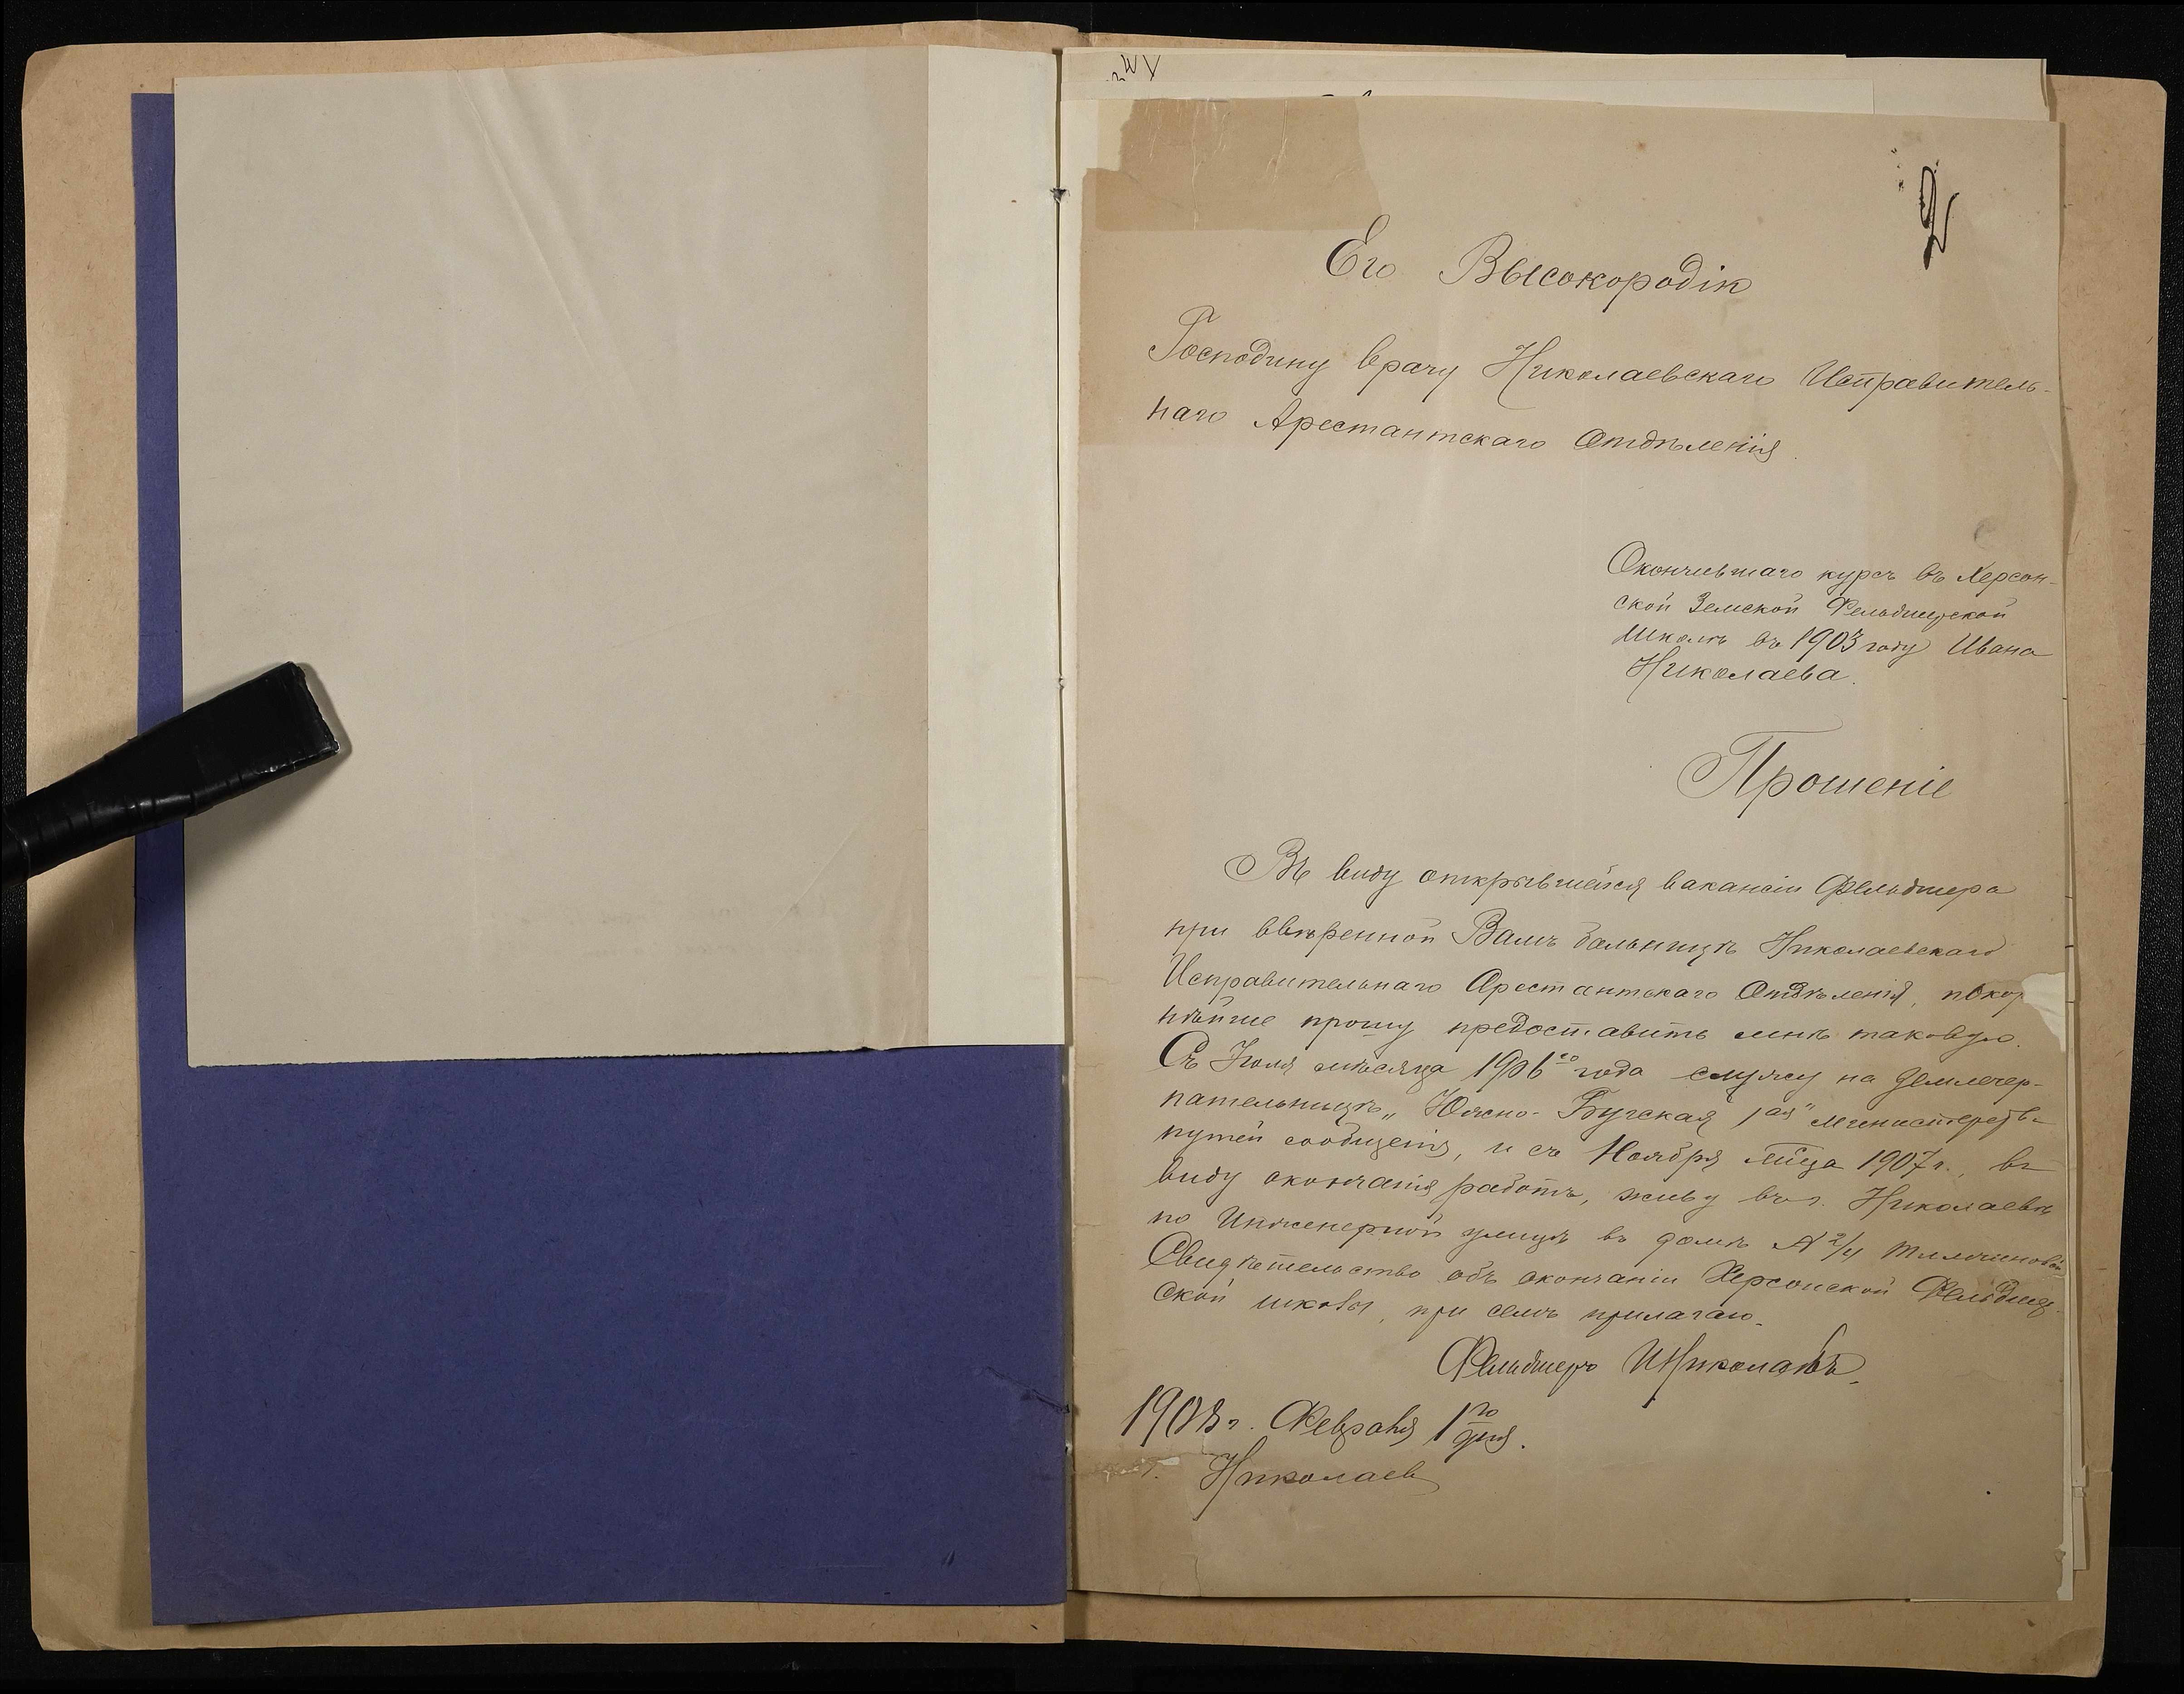 2
Его Высокородію
Господину врачу Николаевскаго Исправитель-
наго Арестантскаго Отдѣленія.
Окончившаго курсъ въ Херсон-
ской Земской Фельдшерской
Школѣ въ 1903 году Ивана
Николаева.
Прошеніе
Въ виду открывшейся вакансіи Фельдшера
при ввѣренной Вамъ больницѣ Николаевскаго
Исправительнаго Арестантскаго Отдѣленія, покор
нѣйше прошу предоставить мнѣ таковую.
Съ Іюля мѣсяца 1906го года служу на Землечер-
пательницѣ „Южно-Бугская 1ая" Министерств
путей сообщенія, и съ Ноября мѣца 1907 г., въ
виду окончанія работъ, живу въ г. Николаевѣ
по Инженерной улицѣ въ домѣ № 2/4
Свидѣтельство объ окончаніи Херсонской Фельдшер-
ской школы, при семъ прилагаю.
Фельдшеръ ИНиколаевъ.
1908 г. Февраля 1го дня.
г. Николаев